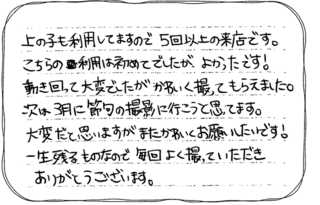 上の子も利用してますので 5回以上の来店です。
こちらの利用は初めてでしたが よかったです!
動き回って大変でしたが かわいく撮ってもらえました。
次は3月に節句の撮影に行こうと思てます。
大変だと思いますが またかわいくお願いしたいです!
一生残るものなので 毎回よく撮っていただき
ありがとうございます。